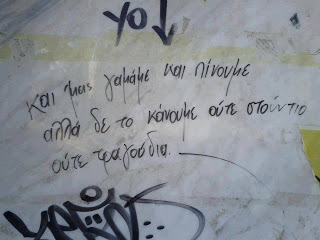 YO ↓
και μεις γαμάμε και πίνουμε
αλλά δε το κάνουμε ούτε στούντιο
ούτε τραγούδια.